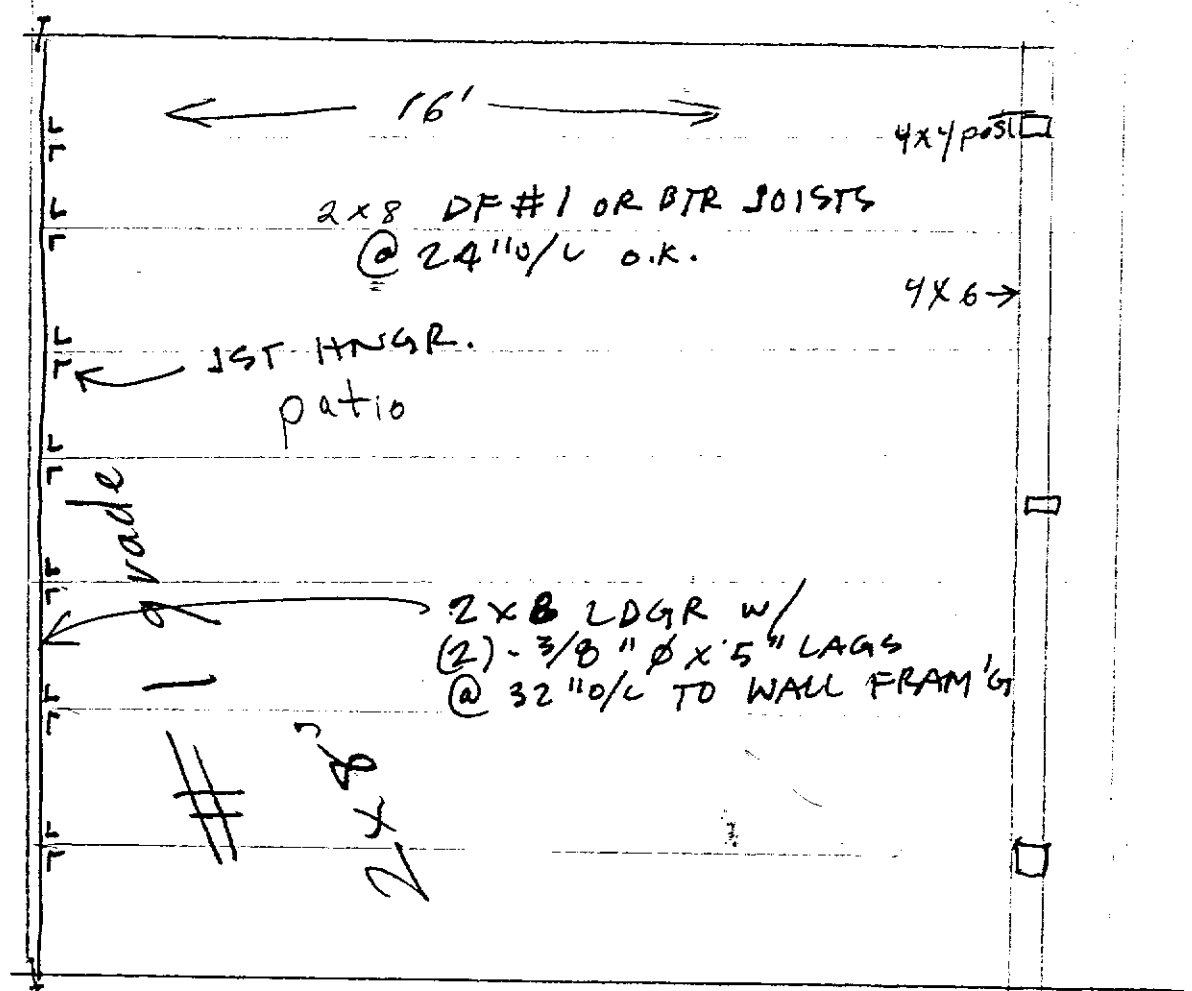 16'
4x4 post
2x8 DF #1 OR BTR JOISTS
@ 24"O/C O.K.
4X6
JST HNGR.
patio
2x8 LDGR W/
(2)-3/8"Ø x 5" LAGS
@ 32"O/C TO WALL FRAM'G
# 1 grade
2x8's